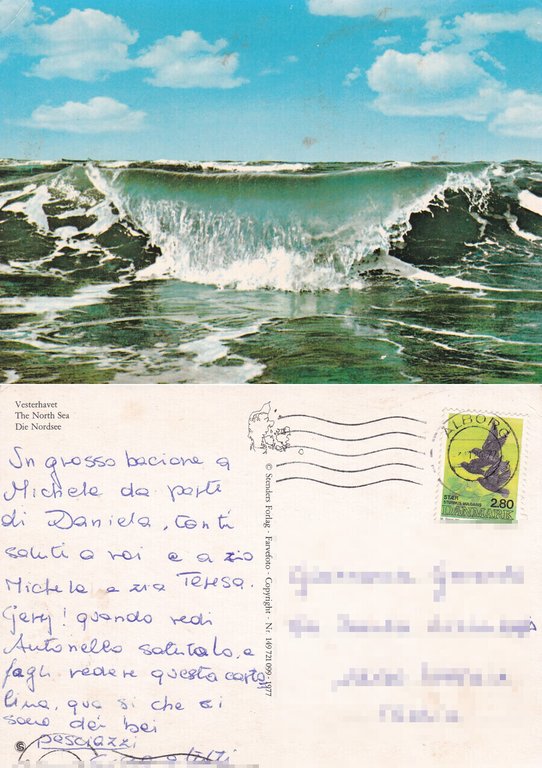 Vesterhavet
The North Sea
Die Nordsee
Un grosso bacione a
Michele da parte
di Daniela, tanti
saluti a voi e a zio
Michele e zia Teresa.
Gerry! quando vedi
Antonello salutalo, e
fagli vedere questa carto
lina, qua si che ci
sono dei bei
pesciazzi
© Stenders Forlag - Farvefoto - Copyright - Nr. 149 721 099 - 1977
ALBORG
STÆR
STURNUS VULGARIS
2.80
DANMARK